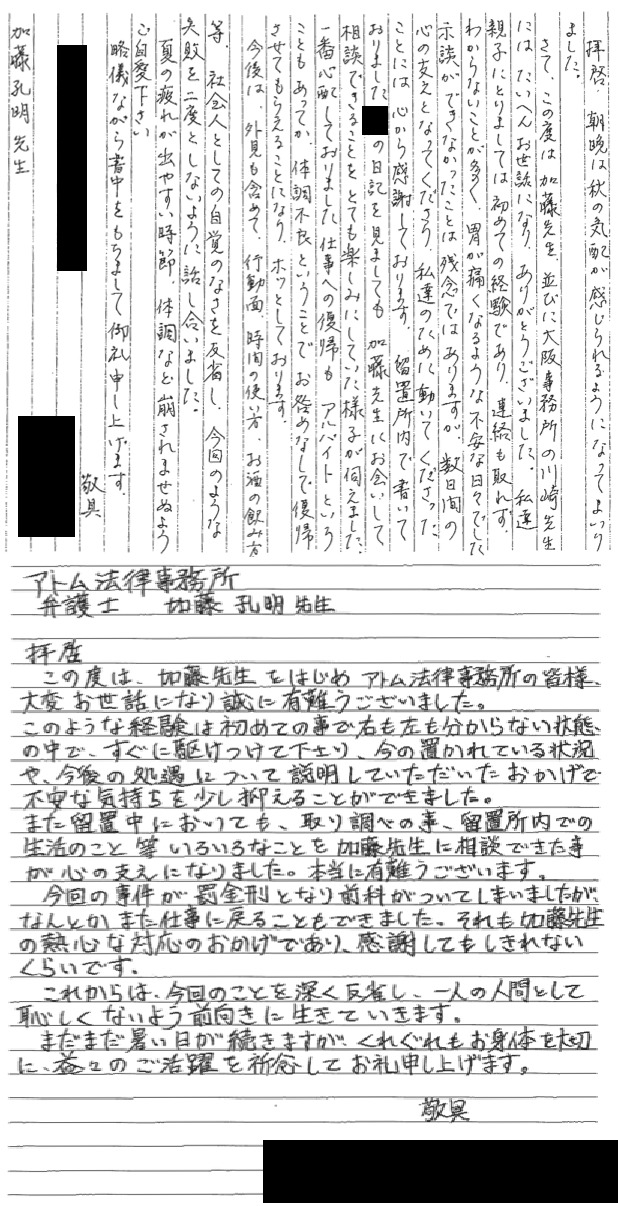 拝啓　朝晩は秋の気配が感じられるようになってまいり
ました。
さて、この度は加藤先生、並びに大阪事務所の川崎先生
には、たいへんお世話になり、ありがとうございました。私達
親子にとりましては初めての経験であり、連絡も取れず、
わからないことが多く、胃が痛くなるような不安な日々でした
示談ができなかったことは残念ではありますが、数日間の
心の支えとなってくださり、私達のために動いてくださった
ことには心から感謝しております。留置所内で書いて
おりました
の日記を見ましても、加藤先生にお会いして
相談できることをとても楽しみにしていた様子が伺えました。
一番心配しておりました仕事への復帰も、アルバイトという
こともあってか、体調不良ということでお咎めなしで復帰
させてもらえることになり、ホッとしております。
今後は、外見も含めて、行動面、時間の使い方、お酒の飲み方
等、社会人としての自覚のなさを反省し、今回のような
失敗を二度としないように話し合いました。
夏の疲れが出やすい時節、体調など崩されませぬよう
ご自愛下さい
略儀ながら書中をもちまして御礼申し上げます。
敬具
加藤孔明先生
アトム法律事務所
弁護士　加藤 孔明 先生
拝啓
この度は、加藤先生をはじめアトム法律事務所の皆様、
大変お世話になり誠に有難うございました。
このような経験は初めての事で右も左も分からない状態
の中で、すぐに駆けつけて下さり、今の置かれている状況
や、今後の処遇について説明していただいたおかげで
不安な気持ちを少し抑えることができました。
また留置中においても、取り調べの事、留置所内での
生活のこと等いろいろなことを加藤先生に相談できた事
が心の支えになりました。本当に有難うございます。
今回の事件が罰金刑となり前科がついてしまいましたが、
なんとかまた仕事に戻ることもできました。それも加藤先生
の熱心な対応のおかげであり、感謝してもしきれない
くらいです。
これからは、今回のことを深く反省し、一人の人間として
恥しくないよう前向きに生きていきます。
まだまだ暑い日が続きますが、くれぐれもお身体を大切
に、益々のご活躍を祈念してお礼申し上げます。
敬具